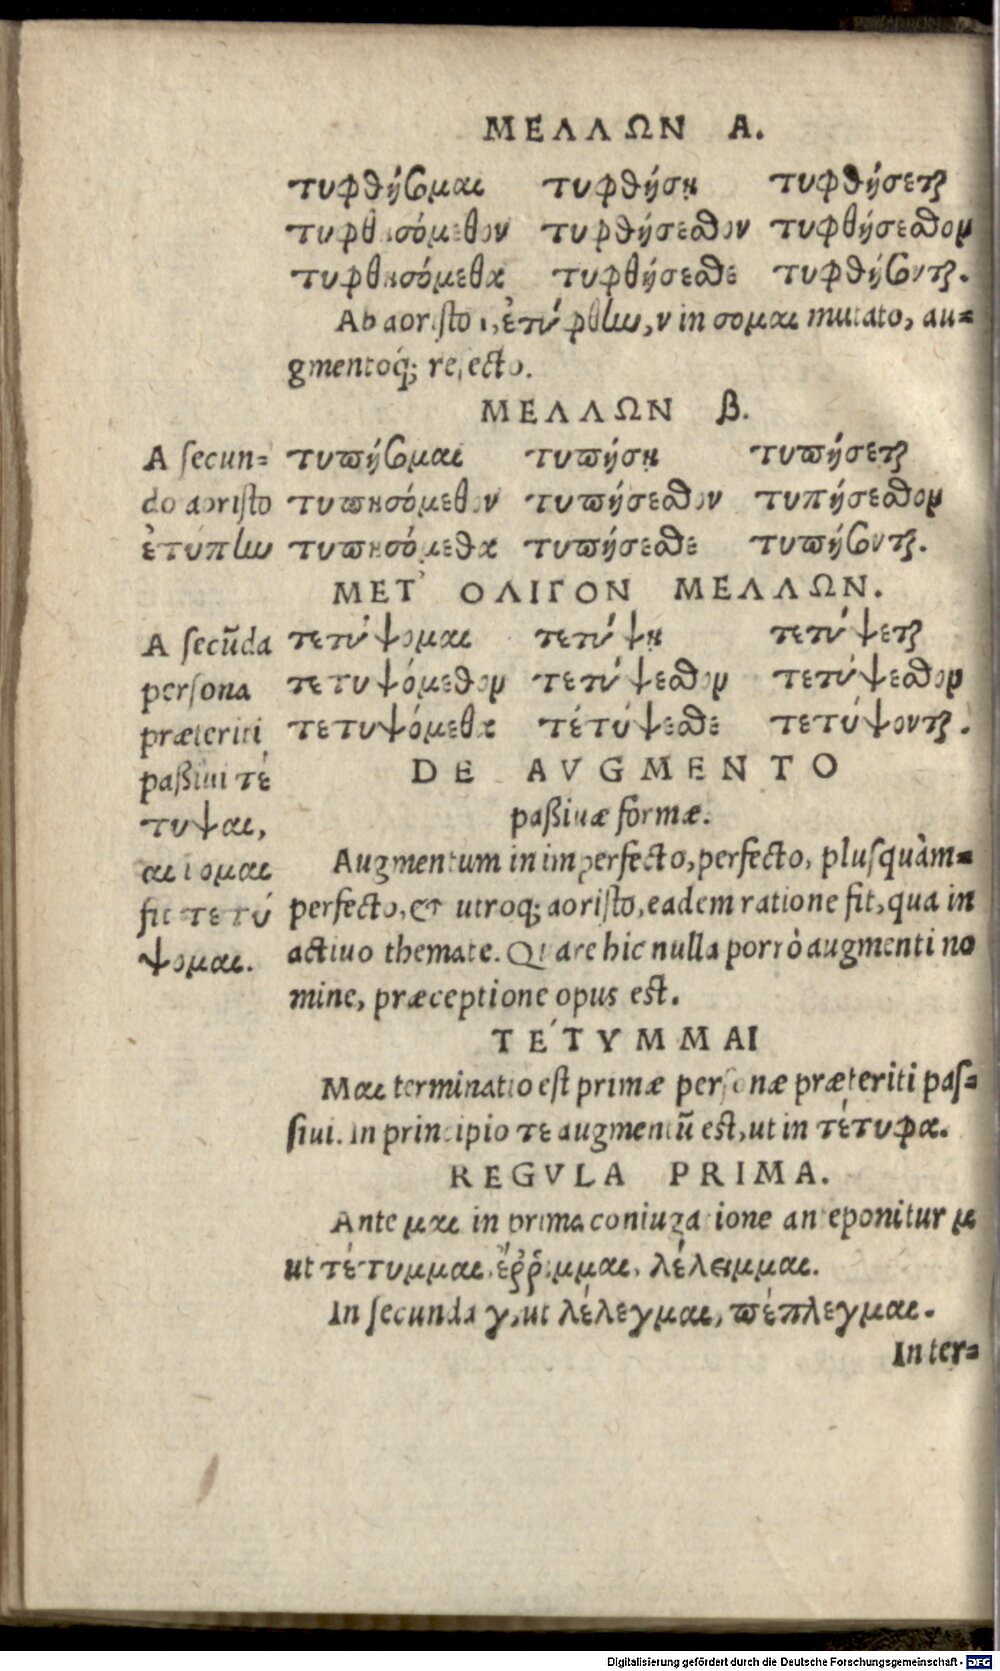 ΜΕΛΛΩΝ Α.
τυφθήσομαι τυφθήσῃ τυφθήσεται
τυφθησόμεθον τυφθήσεσθον τυφθήσεσθον
τυφθησόμεθα τυφθήσεσθε τυφθήσονται.
Ab aoristo 1, ἐτύφθην, ν in σομαι mutato, au=
gmentoq́; reiecto.
ΜΕΛΛΩΝ β.
A secun= τυπήσομαι τυπήσῃ τυπήσεται
do aoristo τυπησόμεθον τυπήσεσθον τυπήσεσθον
ἐτύπην τυπησόμεθα τυπήσεσθε τυπήσονται.
ΜΕΤ' ΟΛΙΓΟΝ ΜΕΛΛΩΝ.
A secūda τετύψομαι τετύψῃ τετύψεται
persona τετυψόμεθον τετύψεσθον τετύψεσθον
præteriti τετυψόμεθα τέτύψεσθε τετύψονται.
paßiui τέ
τυψαι,
αι ι ομαι
fit τετύ
ψομαι.
DE AVGMENTO
paßiuæ formæ.
Augmentum in imperfecto, perfecto, plusquàm=
perfecto, & utroq; aoristo, eadem ratione fit, qua in
actiuo themate. Quare hic nulla porrò augmenti no
mine, præceptione opus est.
ΤΕ΄ΤΥΜΜΑΙ
Μαι terminatio est primæ personæ præteriti pas=
siui. In principio τε augmentū est, ut in τέτυφα.
REGVLA PRIMA.
Ante μαι in prima coniugatione anteponitur μ
ut τέτυμμαι, ἔῤῥιμμαι, λέλειμμαι.
In secunda γ, ut λέλεγμαι, πέπλεγμαι.
Inter=
Digitalisierung gefördert durch die Deutsche Forschungsgemeinschaft - DFG